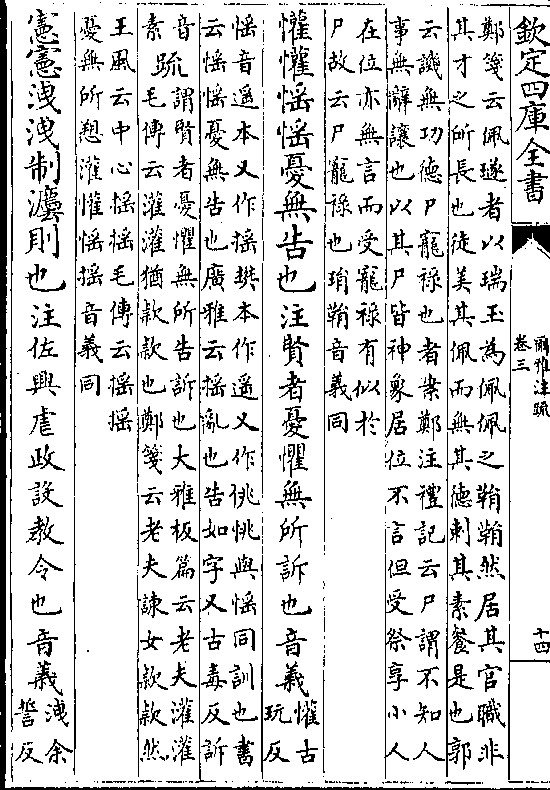 欽定四庫全書
爾雅注疏
卷三
十四
鄭箋云佩璲者以瑞玉為佩佩之鞙鞙然居其官職非
其才之所長也徒美其佩而無其德刺其素餐是也郭
云譏無功德尸寵祿也者案鄭注禮記云尸謂不知人
事無辭讓也以其尸皆神象居位不言但受祭享小人
在位亦無言而受寵祿有似於
尸故云尸寵祿也琄鞙音義同
懽懽愮愮憂無告也注賢者憂懼無所訴也音義
懽古
玩反
愮音遥本又作搖樊本作遥又作佻恌與愮同訓也書
云愮愮憂無告也廣雅云搖亂也告如字又古毒反訴
音
素
疏
謂賢者憂懼無所告訴也大雅板篇云老夫灌灌
毛傳云灌灌猶款款也鄭箋云老夫諫女款款然
王風云中心搖搖毛傳云搖搖
憂無所愬灌懽愮搖音義同
憲憲洩洩制灋則也注佐興虐政設教令也音義
洩余
誓反